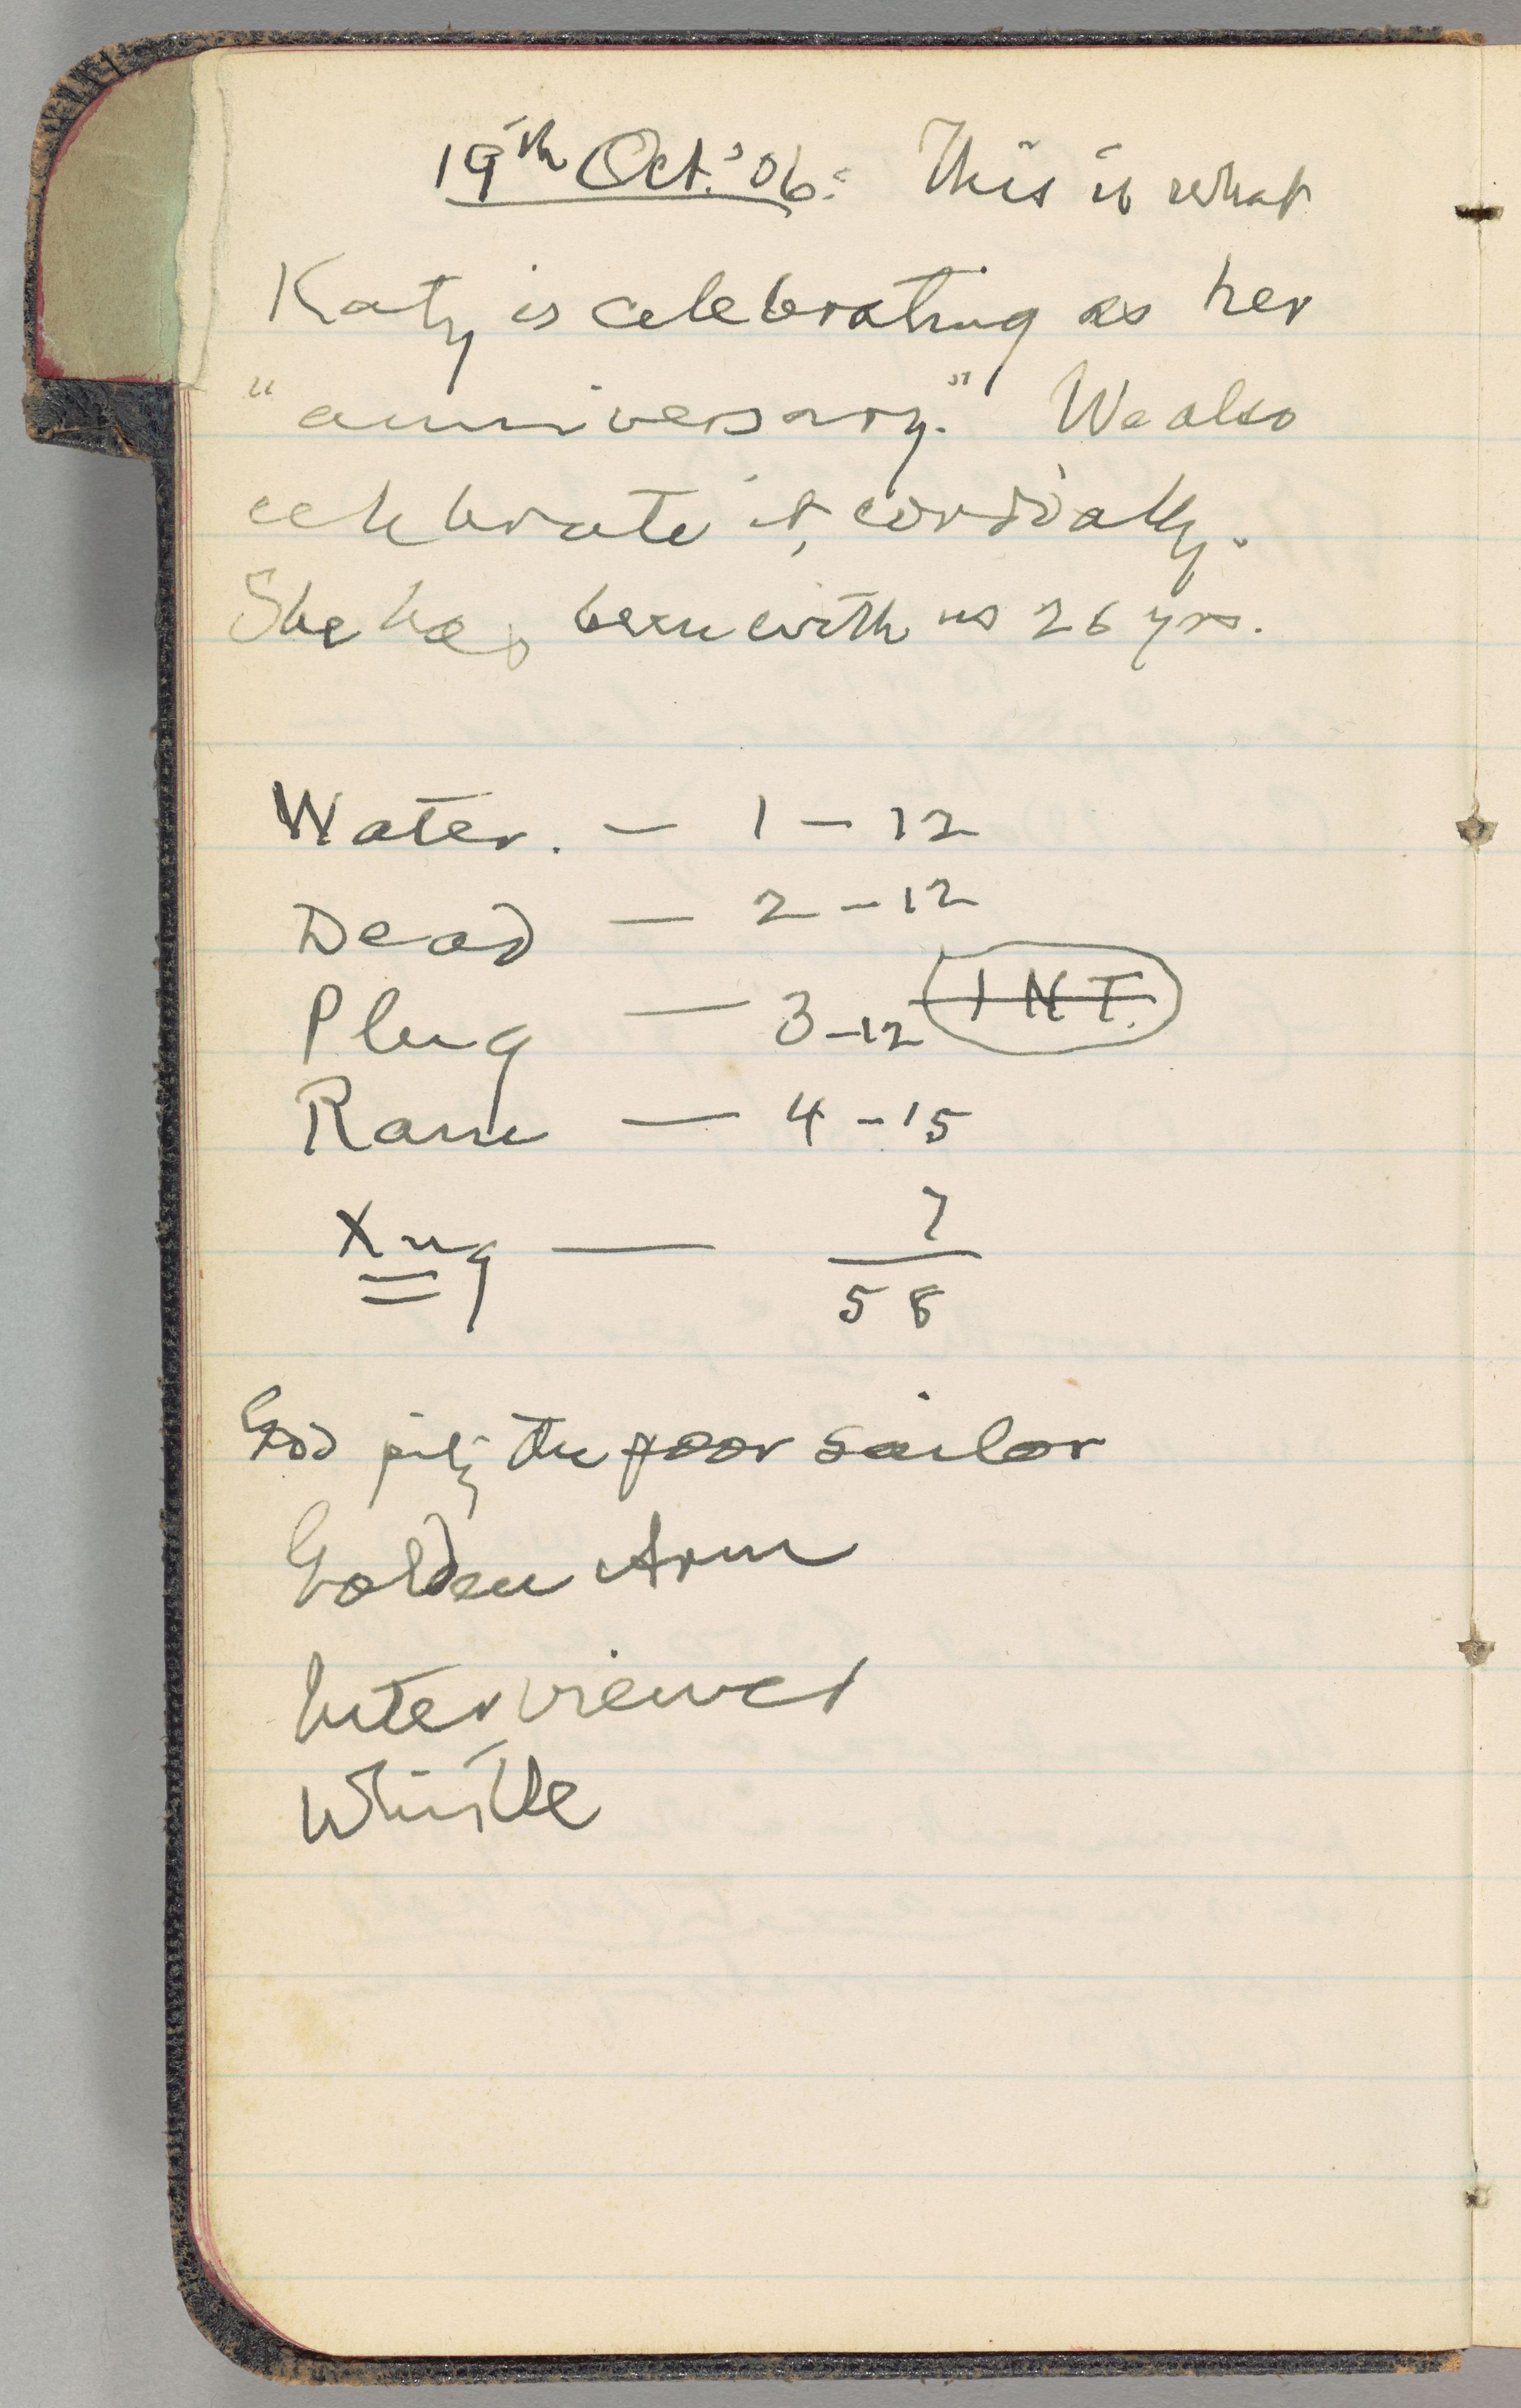 19th Oct. '06: This is what
Katy is celebrating as her
"anniversary." We also
celebrate it, cordially.
She has been with us 26 yrs.
Water. — 1 — 12
Dead — 2 — 12
Plug — 3 — 12 INT.
Ram — 4 — 15
Xng — 7
58
God pity the poor sailor
Golden Arm
Interviewer
Whistle